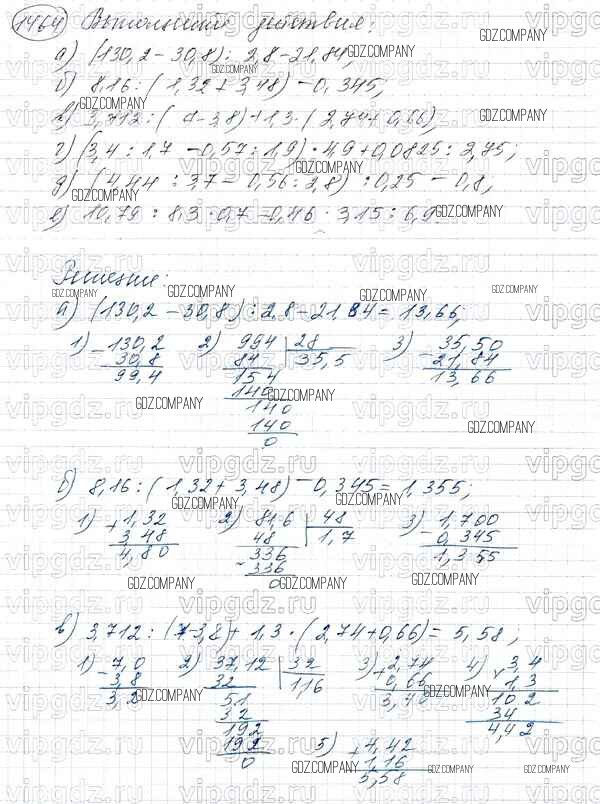 1464 Выполните действия:
а) (130,2 - 30,8) : 2,8 - 21,84;
б) 8,16 : (1,32 + 3,48) - 0,345;
в) 3,712 : (7 - 3,8) + 1,3 · (2,74 + 0,66);
г) (3,4 : 1,7 - 0,57 : 1,9) · 4,9 + 0,0825 : 2,75;
д) (4,44 : 3,7 - 0,56 : 2,8) : 0,25 - 0,8;
е) 10,79 : 8,3 · 0,7 - 0,46 · 3,15 : 6,9.
Решение:
а) (130,2 - 30,8) : 2,8 - 21,84 = 13,66;
1) 130,2 2) 994 | 28 3) 35,50
- 30,8 84 35,5 - 21,84
99,4 154 13,66
140
140
140
0
б) 8,16 : (1,32 + 3,48) - 0,345 = 1,355;
1) 1,32 2) 81,6 | 48 3) 1,700
+ 3,48 48 1,7 - 0,345
4,80 336 1,355
- 336
0
в) 3,712 : (7 - 3,8) + 1,3 · (2,74 + 0,66) = 5,58;
1) 7,0 2) 37,12 | 32 3) 2,74 4) 3,4
- 3,8 32 1,16 + 0,66 × 1,3
3,2 51 3,40 102
32 34
192 4,42
192 5) 4,42
0 + 1,16
5,58
GDZ.COMPANY
vipgdz.ru